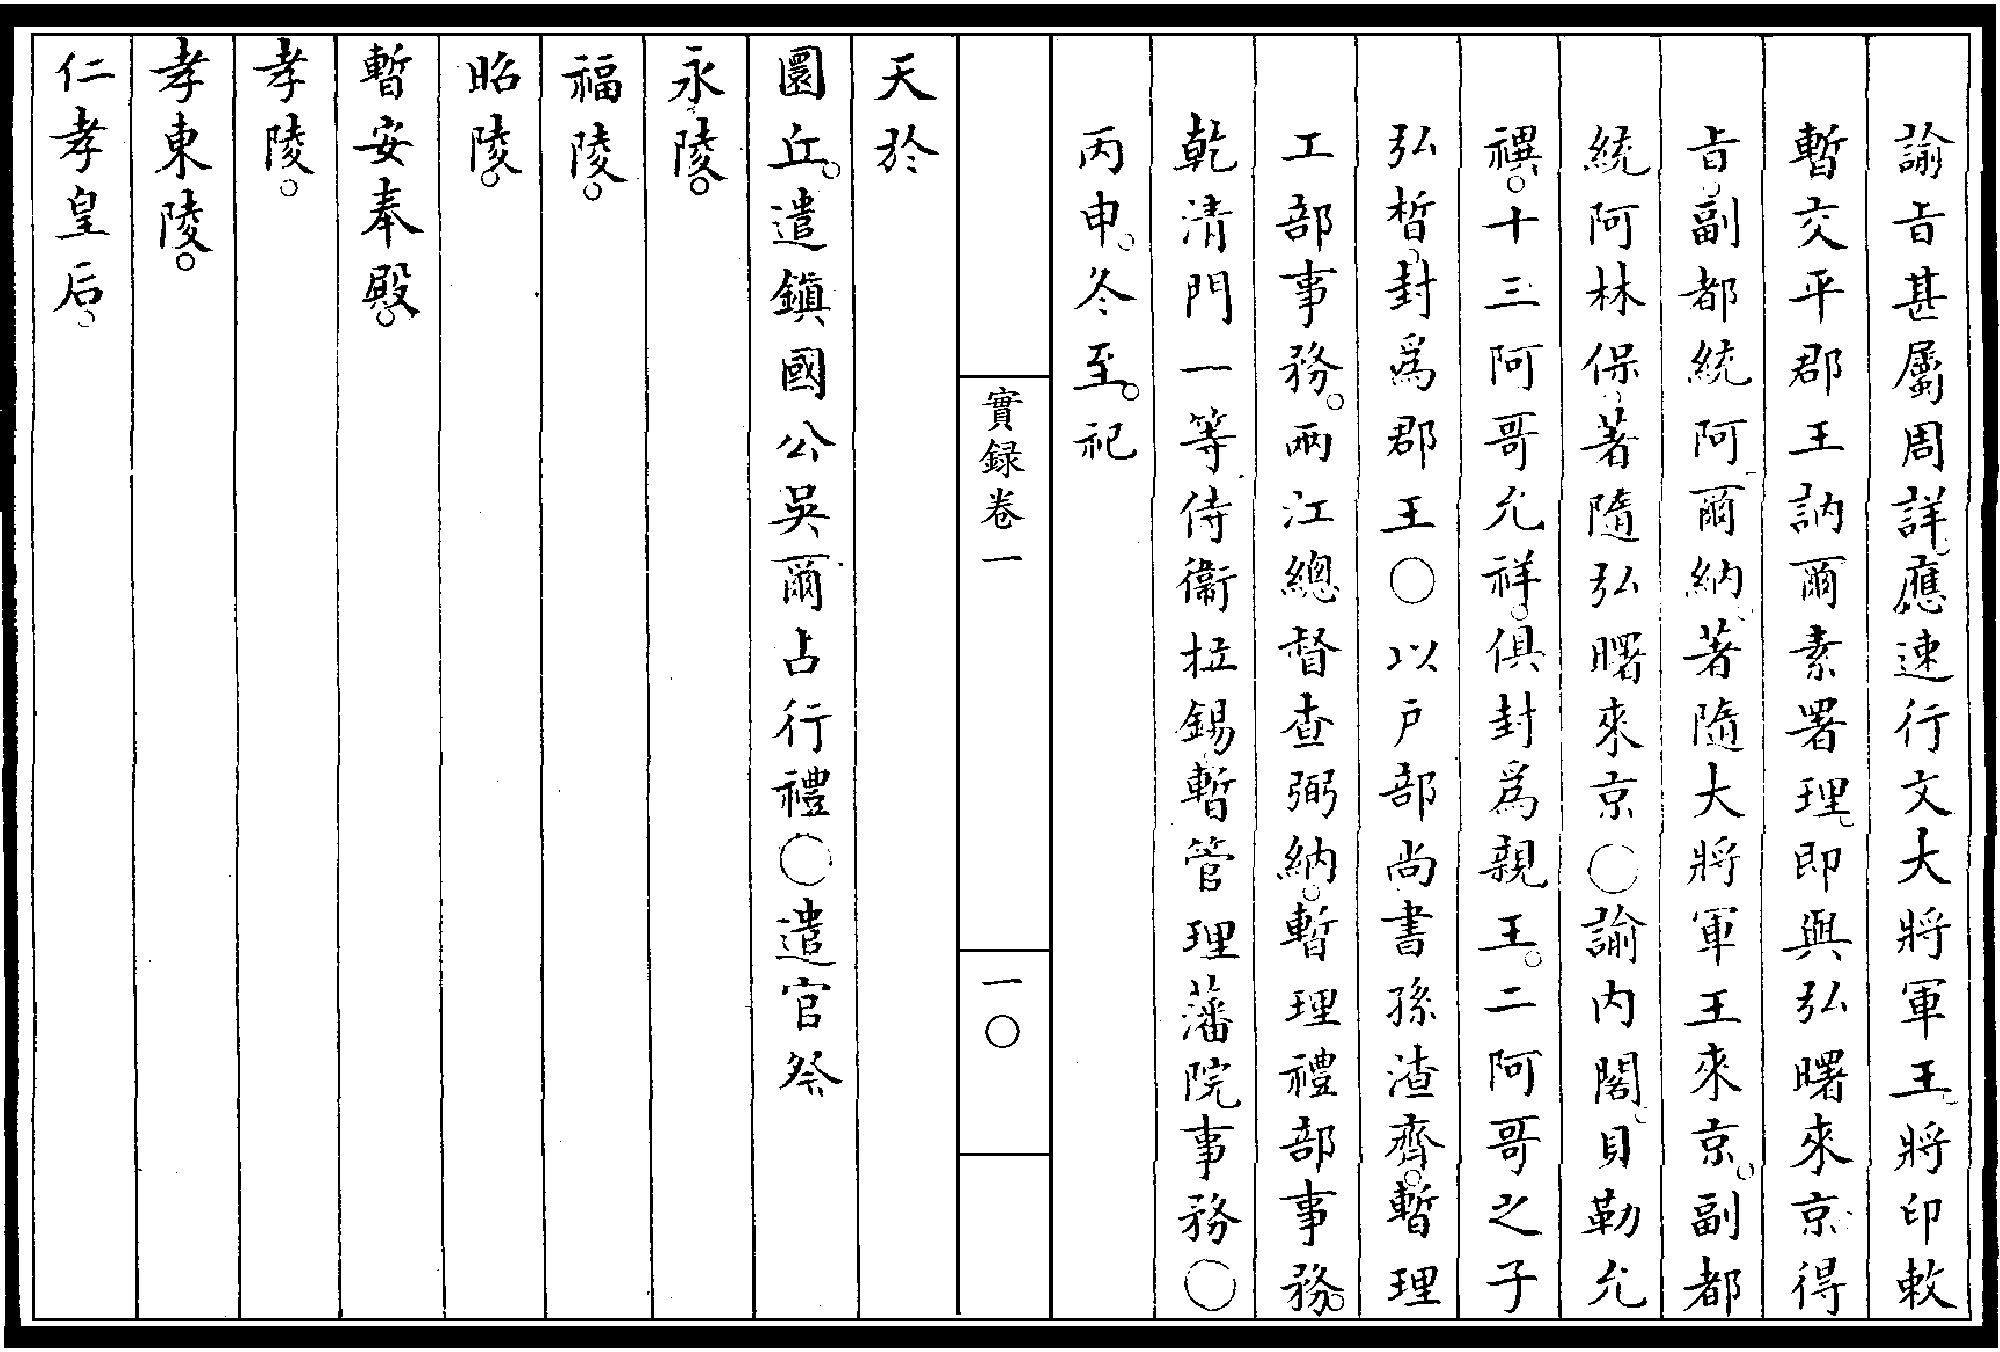 諭旨甚屬周詳。應速行文大將軍王。將印敕
暫交平郡王訥爾素署理。即與弘曙來京。得
旨。副都統阿爾納。著隨大將軍王來京。副都
統阿林保。著隨弘曙來京○諭內閣。貝勒允
禩。十三阿哥允祥。俱封爲親王。二阿哥之子
弘晳。封爲郡王○以戶部尚書孫渣齊。暫理
工部事務。兩江總督查弼納。暫理禮部事務。
乾清門一等侍衞拉錫。暫管理藩院事務○
丙申。冬至。祀
實録卷一
一〇
天於
圜丘。遣鎮國公吳爾占行禮○遣官祭
永陵。
福陵。
昭陵。
暫安奉殿。
孝陵。
孝東陵。
仁孝皇后。